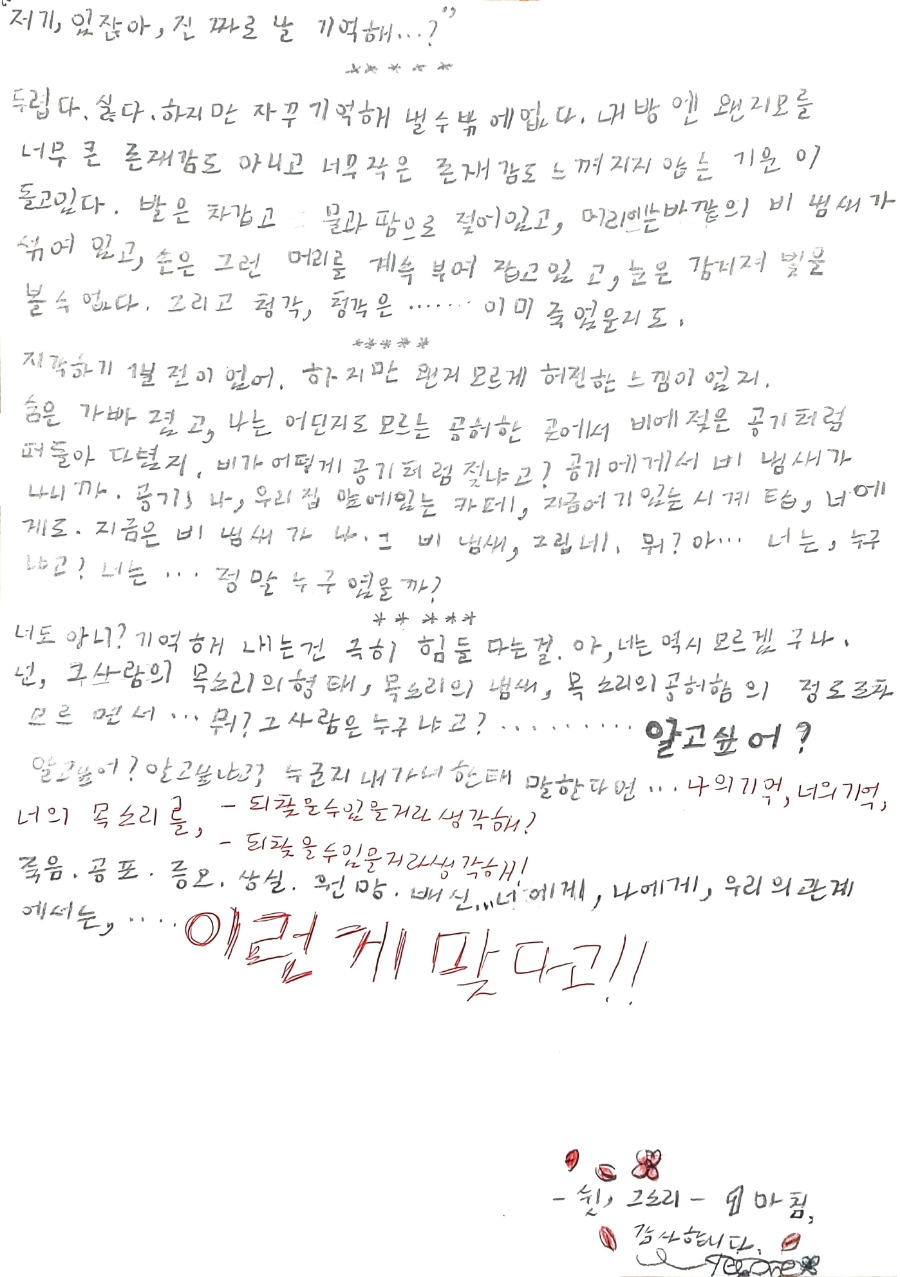 "저기, 있잖아, 진짜로 날 기억해...?",
*****
두렵다. 싫다. 하지만 자꾸 기억해 낼 수 밖에 없다. 내 방엔 왠지모를
너무 큰 존재감도 아니고 너무 작은 존재감도 느껴지지 않는 기운이
돌고있다. 발은 차갑고 물과 땀으로 젖어있고, 머리에는 바깥의 비 냄새가
섞여 있고, 손은 그런 머리를 계속 부여 잡고있고, 눈은 감겨져 빛을
볼 수 없다. 그리고 청각, 청각은 ....... 이미 죽었을리도.
*****
지각하기 1분 전이었어. 하지만 왠지 모르게 허전한 느낌이 었지.
숨은 가빠 졌고, 나는 어딘지도 모르는 공허한 곳에서 비에 젖은 공기처럼
퍼돌아 다녔지. 비가 어떻게 공기처럼 젖냐고? 공기에게서 비 냄새가
나니까. 공기, 나, 우리집 앞에있는 카페, 지금여기있는 시계 탑, 너에
게도. 지금은 비 냄새가 나. 그 비 냄새, 그립네. 뭐? 아... 너는, 누구
냐고? 너는 ... 정말 누구 였을까?
*****
너도 아니? 기억해 내는건 극히 힘들 다는걸. 아, 너는 역시 모르겠구나.
넌, 그사람의 목소리의 형태, 목소리의 냄새, 목소리의 공허함의 정도조차
모르면서 ... 뭐? 그 사람은 누구냐고? .......... 알고싶어?
알고싶어? 알고싶냐고? 누군지 내가 너한태 말한다면 ... 나의기억, 너의기억,
너의 목소리를, - 되찾을수있을거라 생각해?
- 되찾을수있을거라생각해!
죽음. 공포. 증오. 상실. 원망. 배신...너에게, 나에게, 우리의관계
에서는, ....이런게 맞다고!!
- 쉿, 그소리 - 마침,
감사합니다.